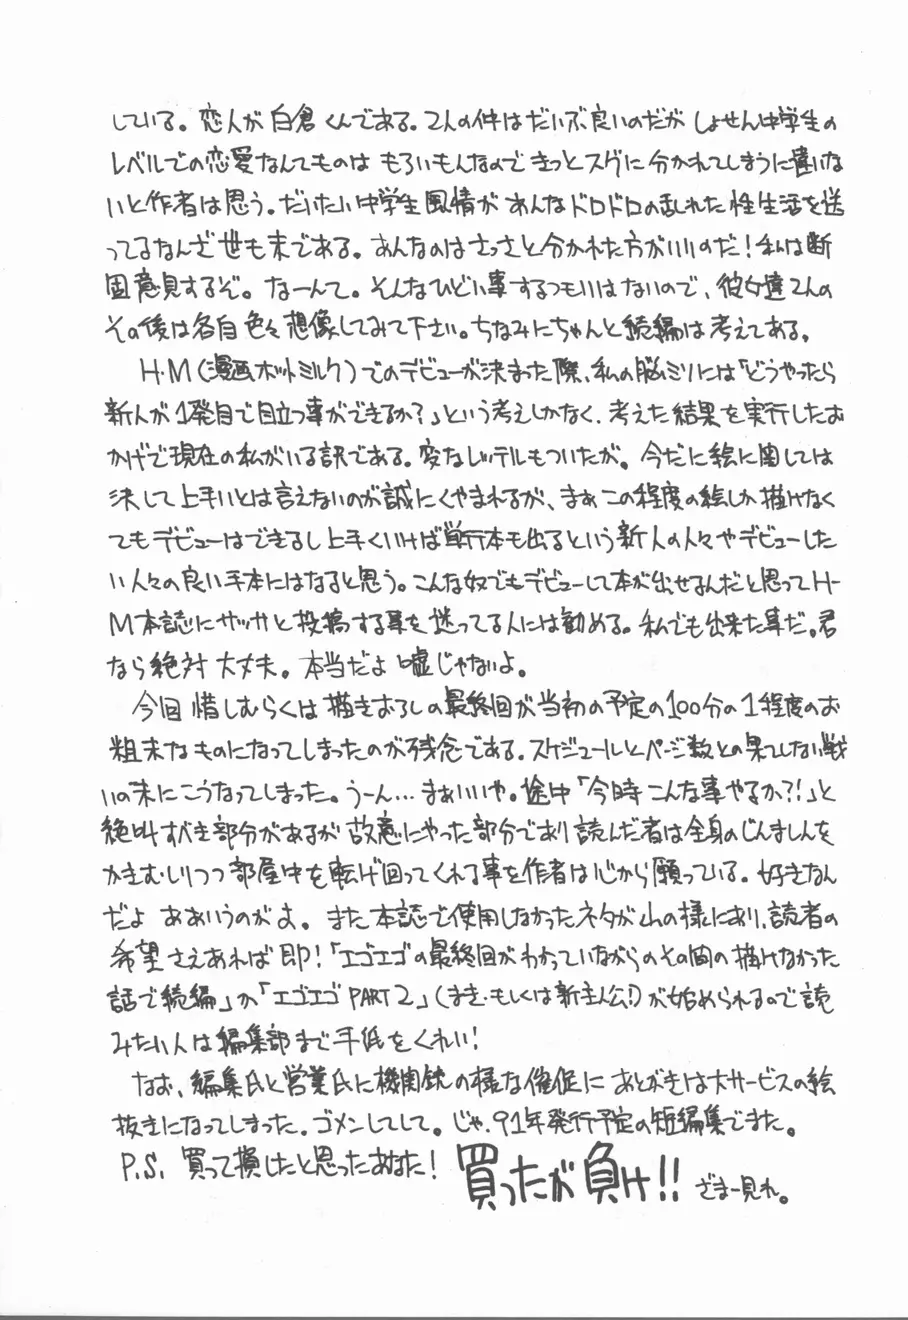 している。恋人が白倉くんである。2人の件はだいぶ良いのだが しょせん中学生の
レベルでの恋愛なんてものは もろいもんなので きっとスグに 分かれてしまうに違いな
いと作者は思う。だいたい中学生風情が あんなドロドロの乱れた性生活を送
ってるなんざ世も末である。あんなのはさっさと分かれた方がいいのだ!私は断
固意見するぞ。なーんて。そんなひどい事するつもりはないので、彼女達2人の
その後は各自色々想像してみて下さい。ちなみにちゃんと続編は考えてある。
H・M(漫画ホットミルク)でのデビューが決まった際、私の脳ミソには「どうやったら
新人が1発目で目立つ事ができるか?」という考えしかなく、考えた結果を実行したお
かげで現在の私がいる訳である。変なレッテルもついたが。今だに絵に関しては
決して上手いとは言えないのが誠にくやまれるが、まぁこの程度の絵しか描けなく
てもデビューはできるし上手くいけば単行本も出るという新人の人々やデビューした
い人々の良い手本にはなると思う。こんな奴でもデビューして本が出せるんだと思ってH・
M本誌にサッサと投稿する事を迷ってる人には勧める。私でも出来た事だ。君
なら絶対 大丈夫。本当だよ 嘘じゃないよ。
今回 惜しむらくは 描きおろしの最終回が当初の予定の100分の1程度のお
粗末なものになってしまったのが残念である。スケジュールとページ数との果てしない戦
いの末にこうなってしまった。うーん…まぁいいや。途中「今時こんな事やるか?!」と
絶叫すべき部分があるが 故意にやった部分であり 読んだ者は全身のじんましんを
かきむしりつつ 部屋中を転げ回ってくれる事を作者は心から願っている。好きなん
だよ ああいうのがよ。また本誌で使用しなかったネタが山の様にあり、読者の
希望さえあれば即!「エゴエゴの最終回がわかっていながらのその間の描けなかった
話で続編」か「エゴエゴ PART2」(まき・もしくは新主人公!)が始められるので読
みたい人は編集部まで手紙をくれい!
なお、編集氏と営業氏に機関銃の様な催促に あとがきは大サービスの絵
抜きになってしまった。ゴメンしてして。じゃ、91年発行予定の短編集でまた。
P.S. 買って損したと思ったあなた! 買ったが負け!! ざまー見れ。